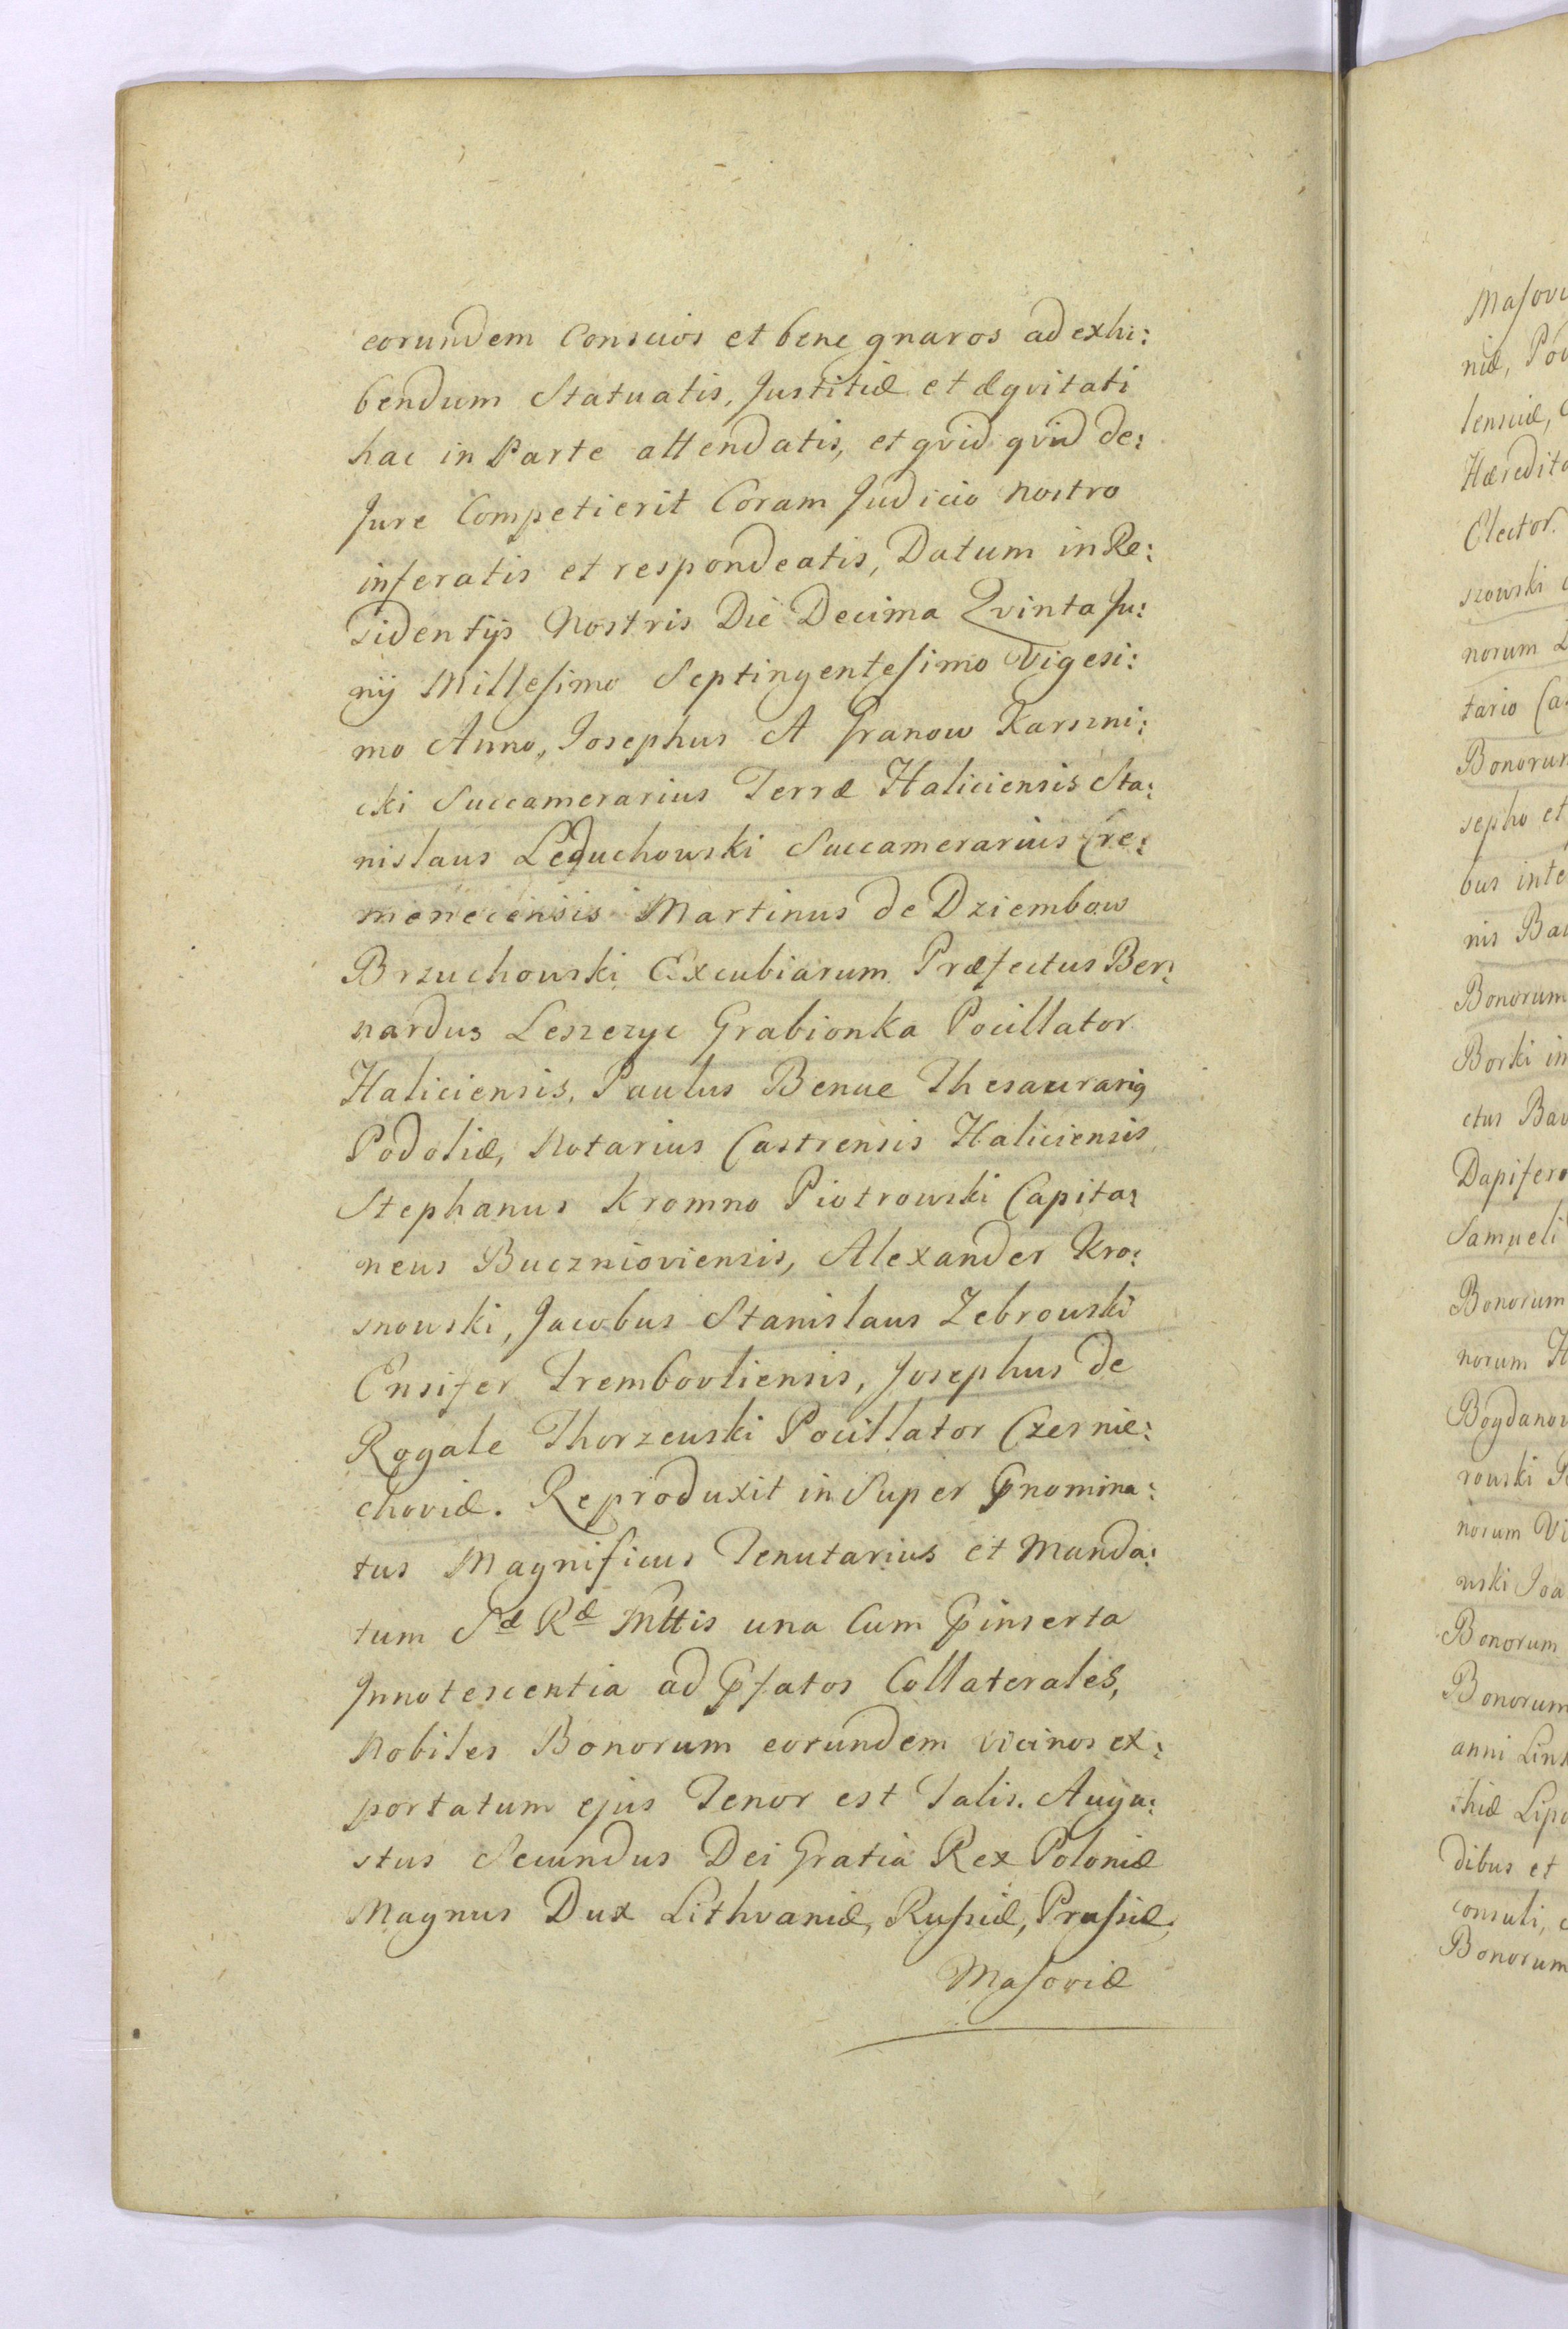 eorundem Conscios et bene gnaros ad exhi:
bendum Statuatis, Justitiæ et æqvitati
hac in Parte attendatis, et qvid qvid de:
Jure Competierit Coram Judicio nostro
inferatis et respondeatis, Datum in Re:
sidentijs Nostris Die Decima Qvinta Ju:
nij Millesimo Septingentesimo Vigesi:
mo Anno, Josephus A Granow Karszni:
cki Succamerarius Terræ Haliciensis Sta:
nislaus Leduchowski Succamerarius Cre:
menecensis Martinus de Dziembow
Brzuchowski Excubiarum Præfectus Ber:
nardus Leszczyc Grabionka Pocillator
Haliciensis, Paulus Benue Thesaurarig
Podoliæ, Notarius Castrensis Haliciensis
Stephanus Kromno Piotrowski Capita:
neus Bucznioviensis, Alexander Kro:
snowski, Jacobus Stanislaus Zebrowski
Ensifer Trembovliensis, Josephus de
Rogale Thorzewski Pocillator Czernie:
choviæ. Reproduxit in Super Pnomina:
tus Magnificus Tenutarius et Manda:
tum Sæ Ræ Mttis una Cum Pinserta
Innotescentia ad Pfatos Collaterales,
Nobiles Bonorum eorundem vicinos ex:
portatum ejus Tenor est Talis. Augu:
stus Secundus Dei Gratia Rex Poloniæ
Magnus Dux Lithvaniæ, Russiæ, Prussiæ,
Masoviæ
Masovi
niæ, Po
lensciæ,
Hæredita
Elector.
szowski
norum
tario Ca
Bonorum
sepho et
bus inte
nis Ba
Bonorum
Borki in
ctus Ba
Dapifero
Samueli
Bonorum
norum H
Bogdanov
rowski P
norum Vi
wski Joa
Bonorum
Bonorum
anni Link
thiæ Lipo
dibus et
consuli, c
Bonorum